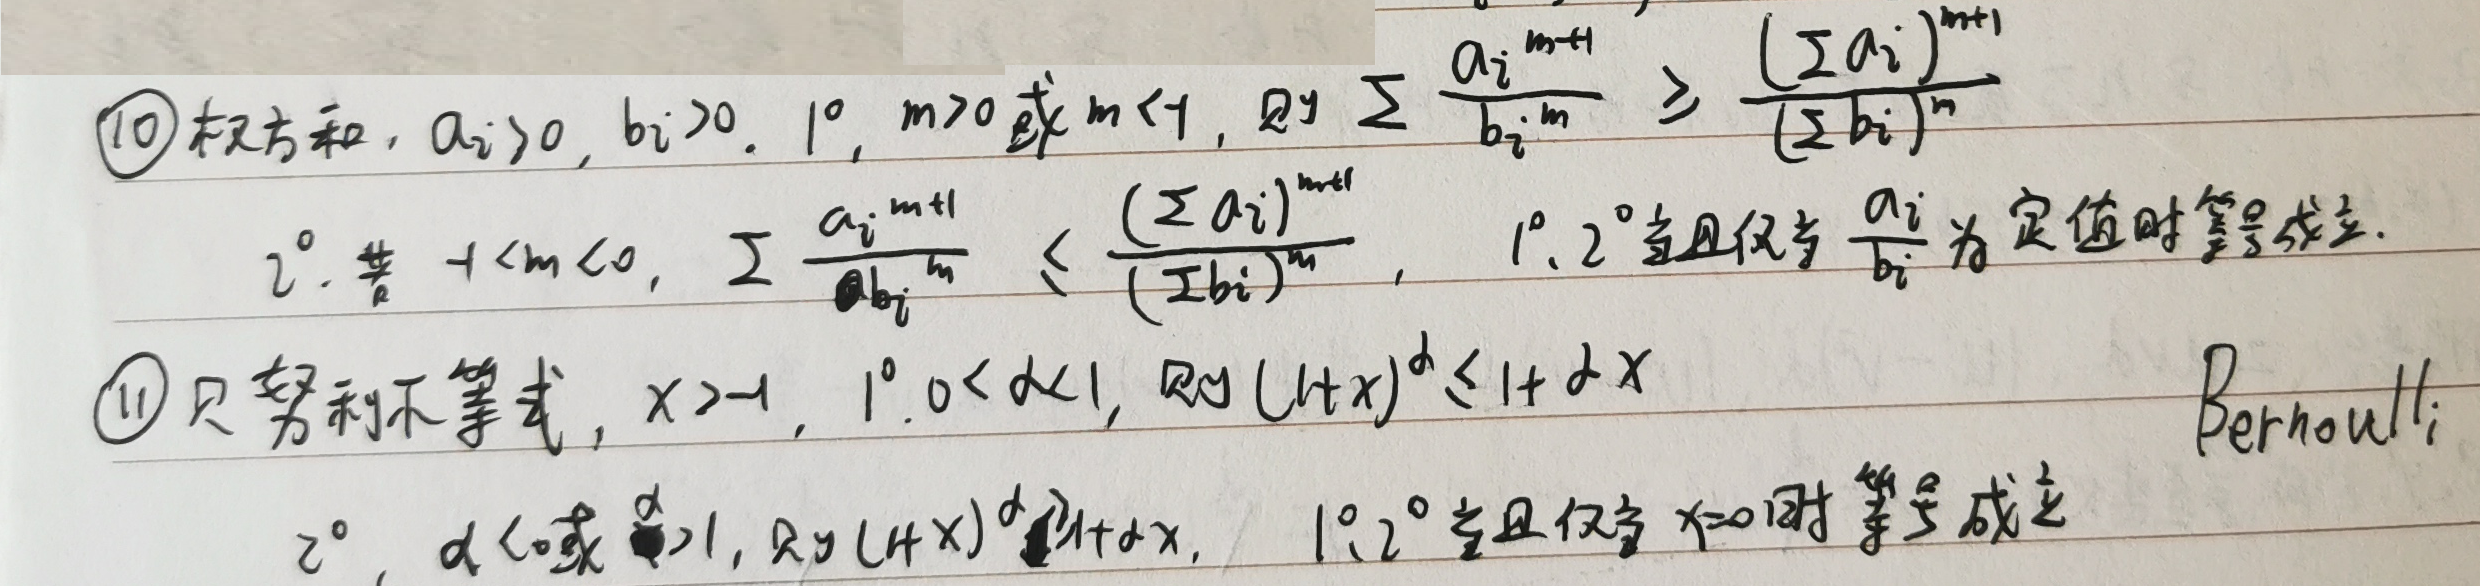 ⑩权方和, aᵢ>0, bᵢ>0. 1°, m>0或m<-1, 则 Σ aᵢ^{m+1}/bᵢ^m ≥ (Σaᵢ)^{m+1}/(Σbᵢ)^m
2°. 若 -1<m<0, Σ aᵢ^{m+1}/bᵢ^m ≤ (Σaᵢ)^{m+1}/(Σbᵢ)^m, 1°、2°当且仅当 aᵢ/bᵢ 为定值时等号成立.
⑪贝努利不等式, x>-1, 1°.0<α<1, 则(1+x)^α≤1+αx
Bernoulli
2°, α<0或α>1, 则(1+x)^α≥1+αx, 1°、2°当且仅当x=0时等号成立